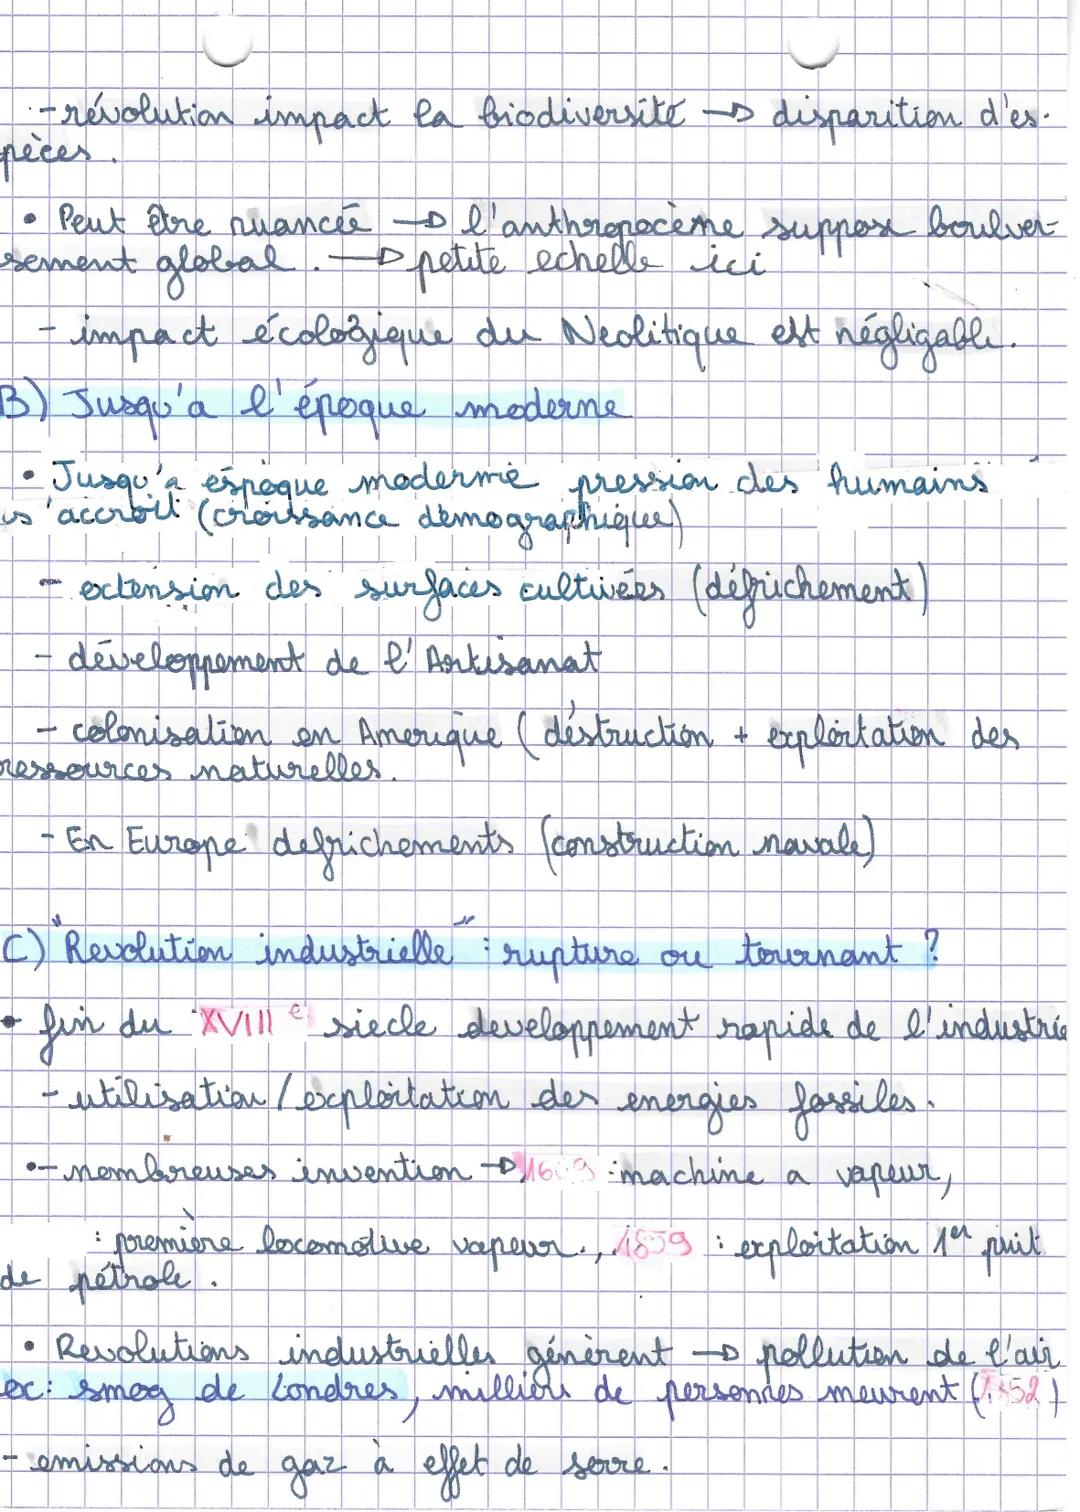 - révolution impact la biodiversité → disparition d'es-
pèces.
• Peut être nuancée → l'anthropocème suppose boulver-
sement global. → petite echelle ici
- impact écologique du Neolitique est négligable.
B) Jusqu'a l'époque moderne
• Jusqu'a éspèque moderne pression des humains
s'accroit (croissance démographique)
- extension des surfaces cultivées (défrichement)
- développement de l'Artisanat
- colonisation en Amerique (déstruction + exploitation des
ressources naturelles.
- En Europe defrichements (construction navale)
C) "Revolution industrielle" : rupture ou tournant ?
• fin du XVIIIe siecle developpement rapide de l'industrie
- utilisation / exploitation des energies fossiles.
•- nombreuses invention → : machine a vapeur,
: première locomotive vapeur., 1859 : exploitation 1er puit
de pétrole.
• Revolutions industrielles génèrent → pollution de l'air
ex: smog de Londres, milliers de personnes meurent (
- emissions de gaz à effet de serre.